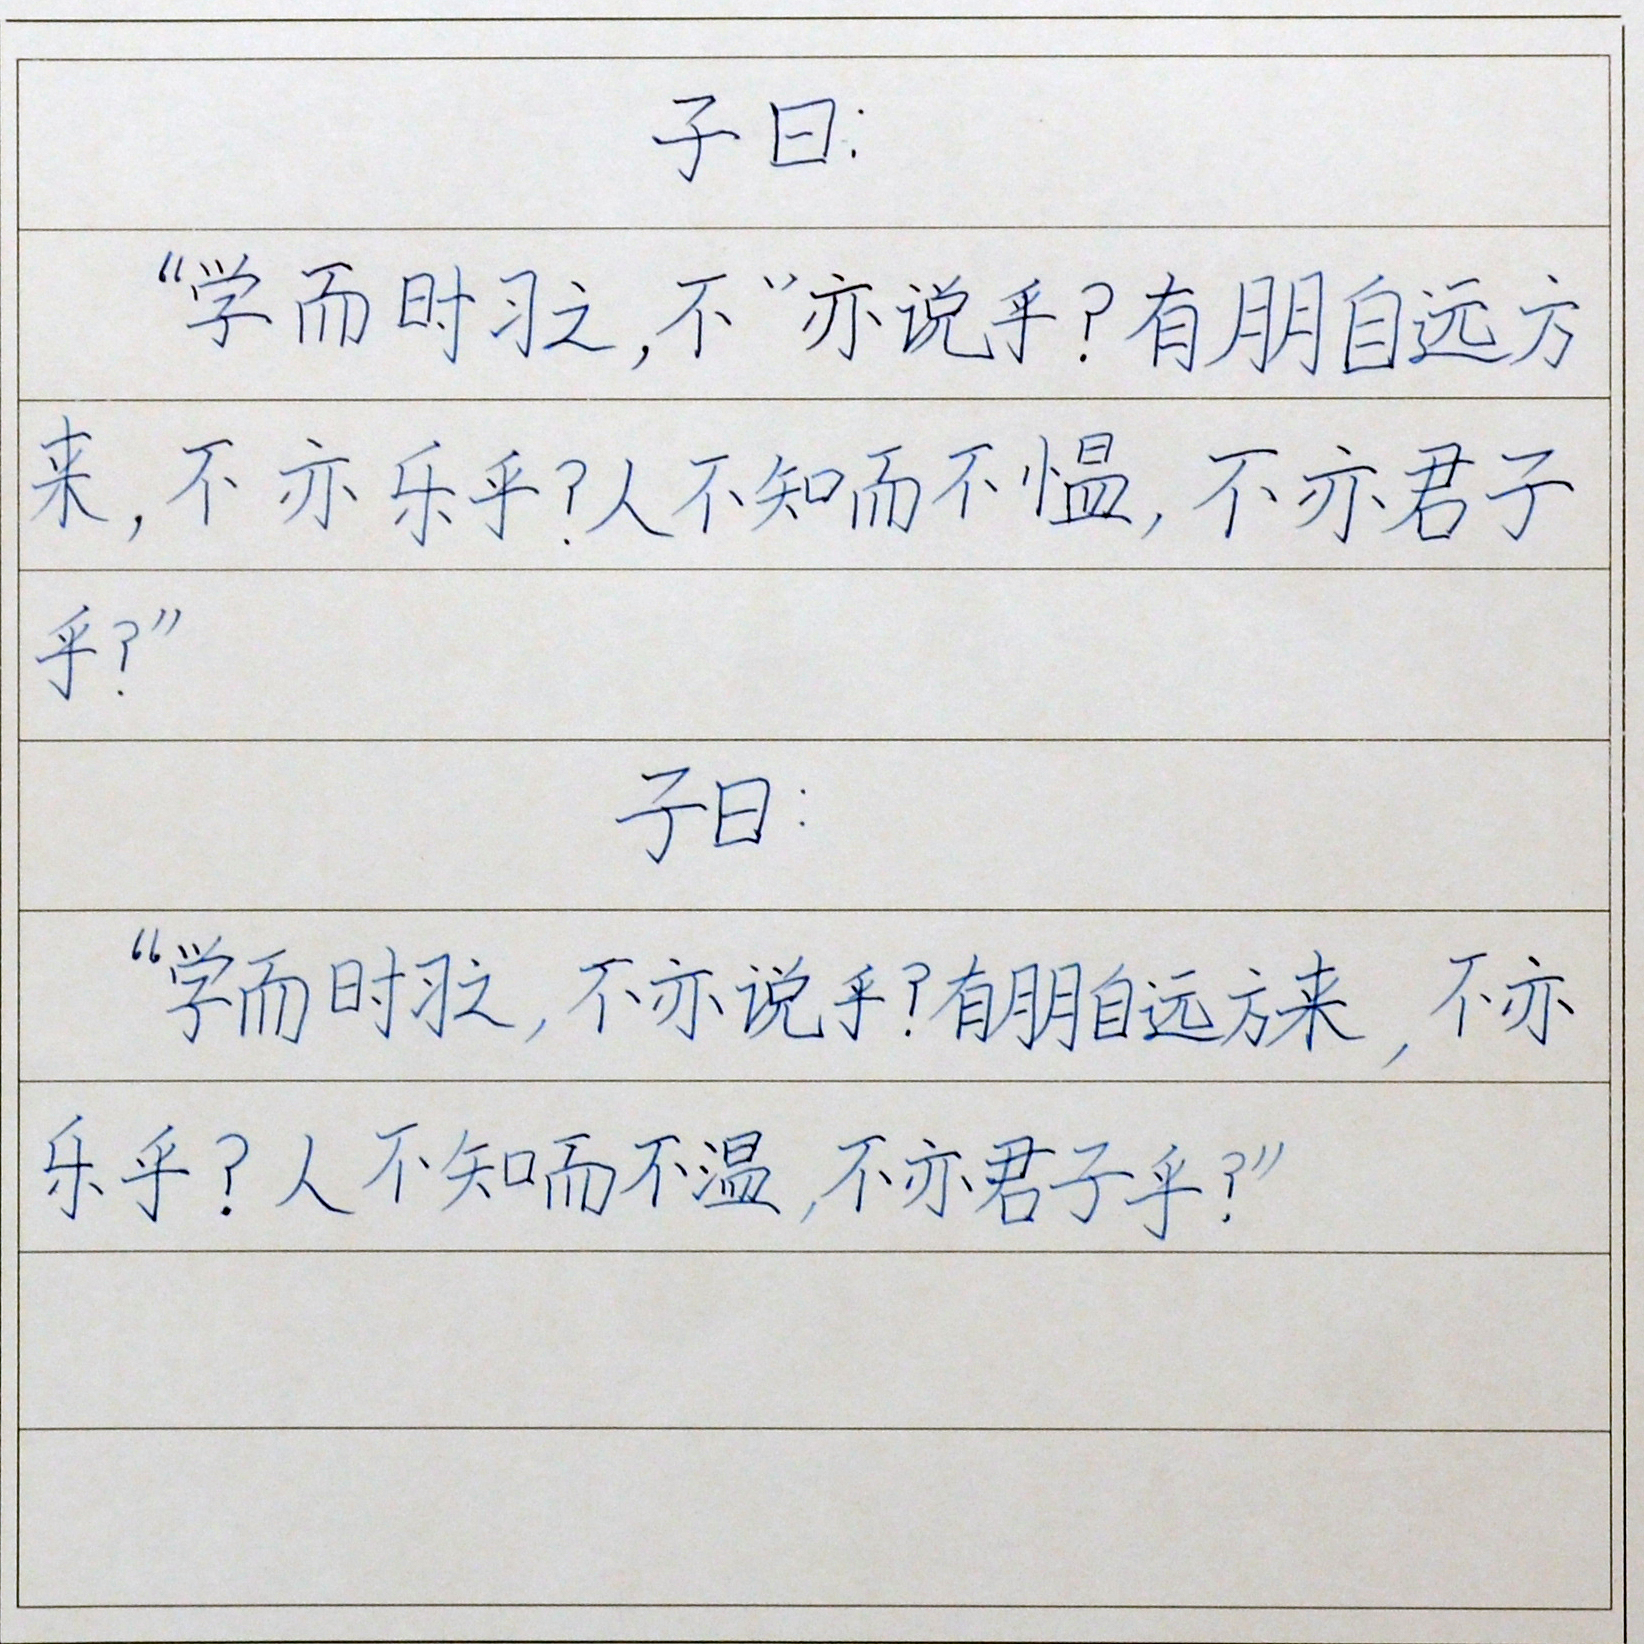 子曰：
“学而时习之，不”亦说乎？有朋自远方
来，不亦乐乎？人不知而不愠，不亦君子
乎？”
子曰：
“学而时习之，不亦说乎？有朋自远方来，不亦
乐乎？人不知而不温，不亦君子乎？”